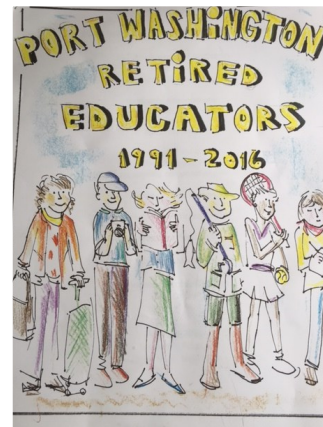 PORT WASHINGTON
RETIRED
EDUCATORS
1991-2016